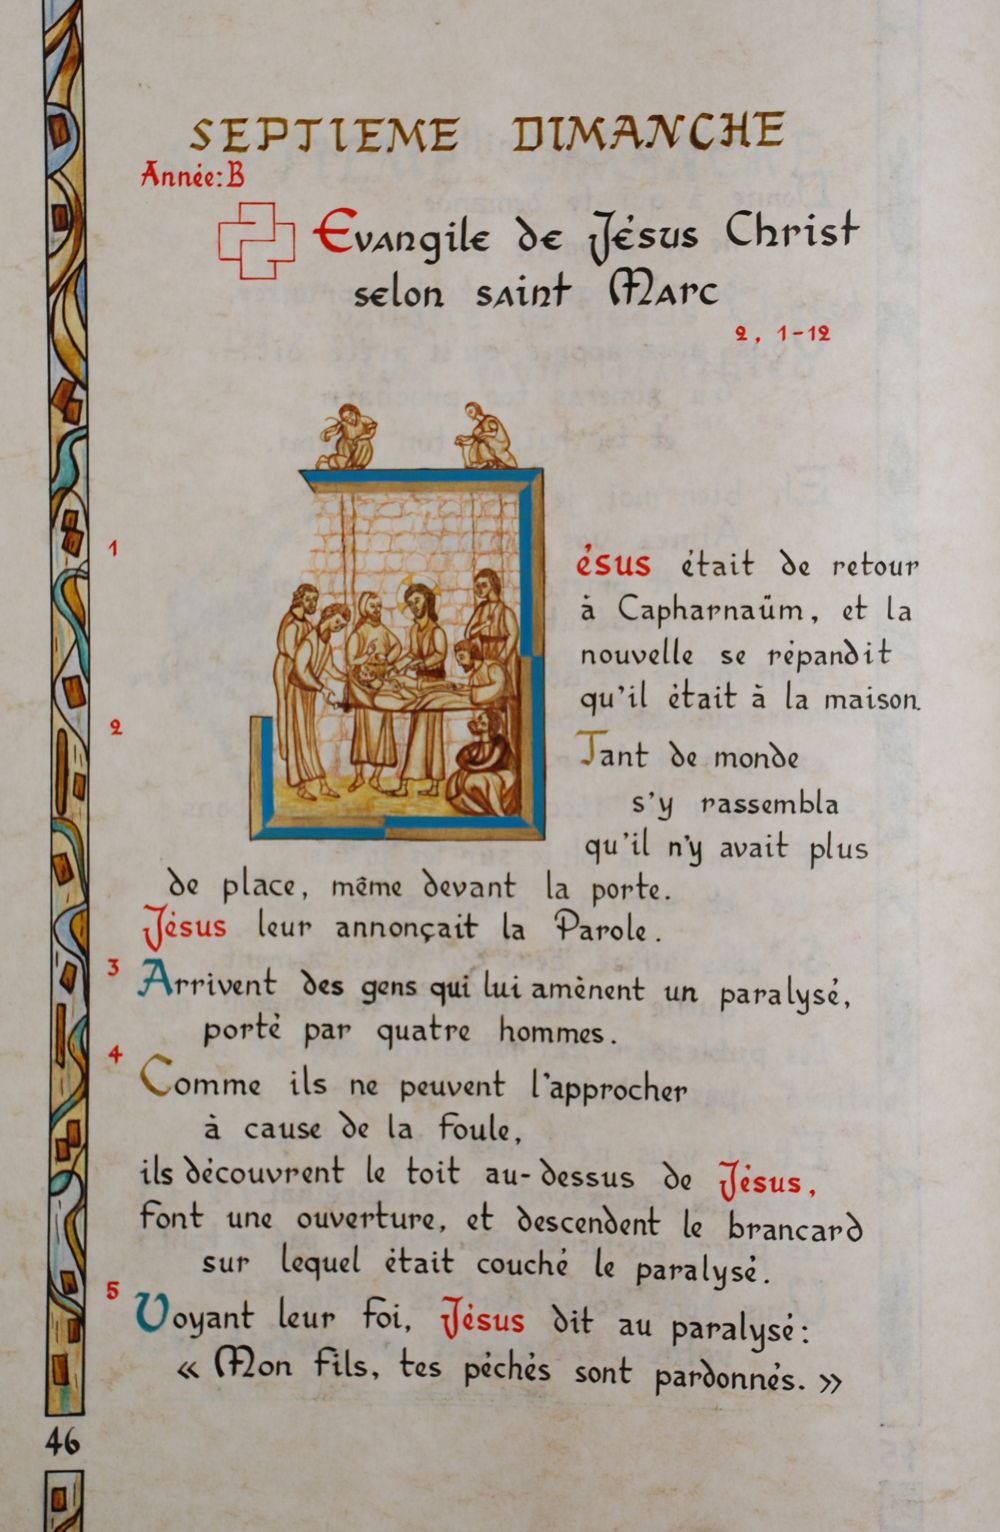 SEPTIEME DIMANCHE
Année: B
Evangile de Jésus Christ
selon saint Marc
2, 1-12
1 ésus était de retour
à Capharnaüm, et la
nouvelle se répandit
qu'il était à la maison.
2 Tant de monde
s'y rassembla
qu'il n'y avait plus
de place, même devant la porte.
Jésus leur annonçait la Parole.
3 Arrivent des gens qui lui amènent un paralysé,
porté par quatre hommes.
4 Comme ils ne peuvent l'approcher
à cause de la foule,
ils découvrent le toit au-dessus de Jésus,
font une ouverture, et descendent le brancard
sur lequel était couché le paralysé.
5 Voyant leur foi, Jésus dit au paralysé:
« Mon fils, tes péchés sont pardonnés. »
46